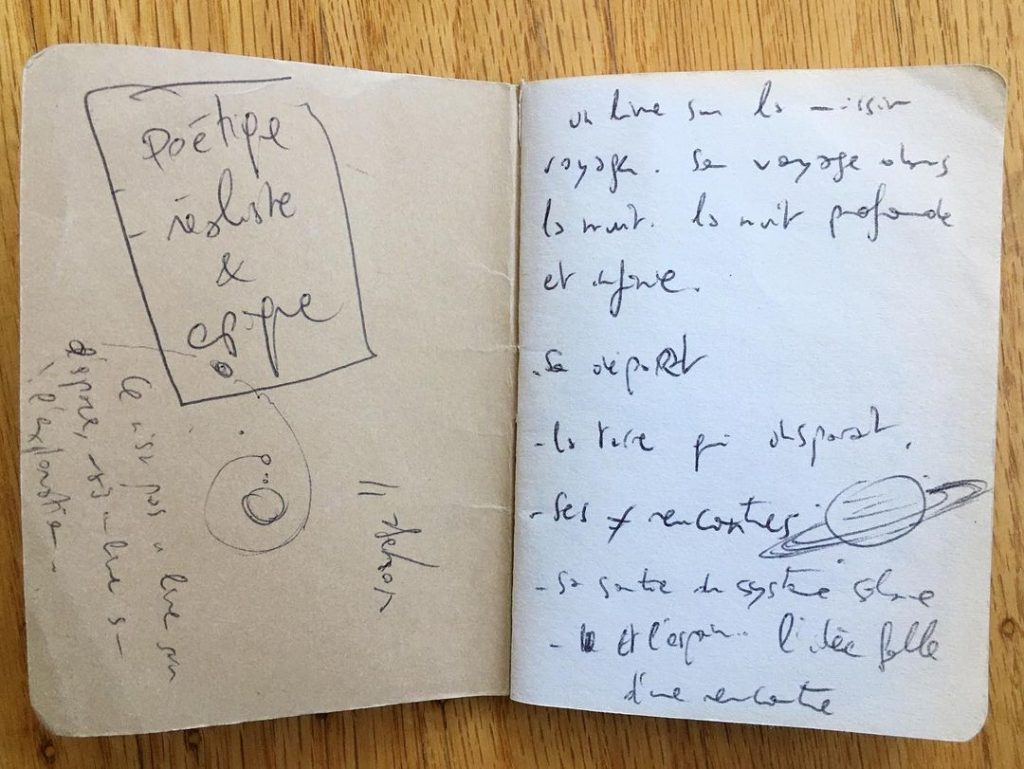 Poétique
réaliste
&
épique
Ce n'est pas un livre sur
l'espace, mais un livre sur
l'exploration.
un livre sur la mission
voyager. Son voyage dans
la nuit. la nuit profonde
et infinie.
- Son départ
- la terre qui disparait.
- Ses ≠ rencontres
- sa sortie du système solaire
- Et l'espoir.. l'idée folle
d'une rencontre